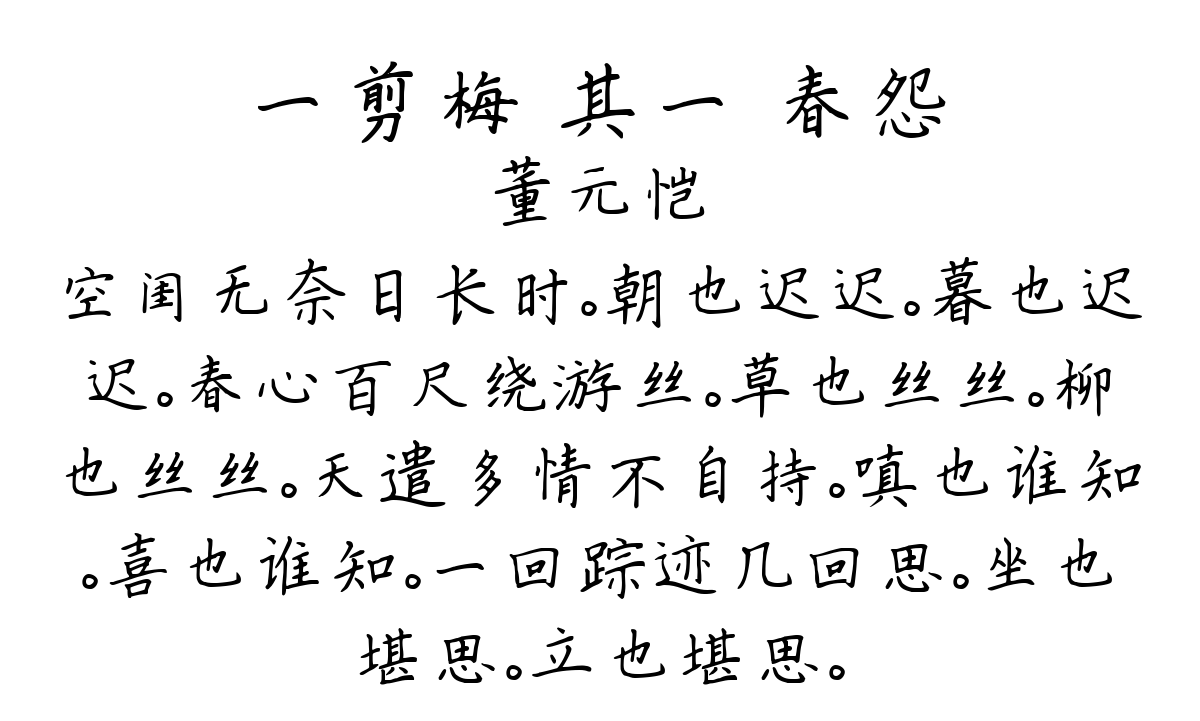 一剪梅 其一 春怨
董元恺
空闺无奈日长时。朝也迟迟。暮也迟
迟。春心百尺绕游丝。草也丝丝。柳
也丝丝。天遣多情不自持。嗔也谁知
。喜也谁知。一回踪迹几回思。坐也
堪思。立也堪思。